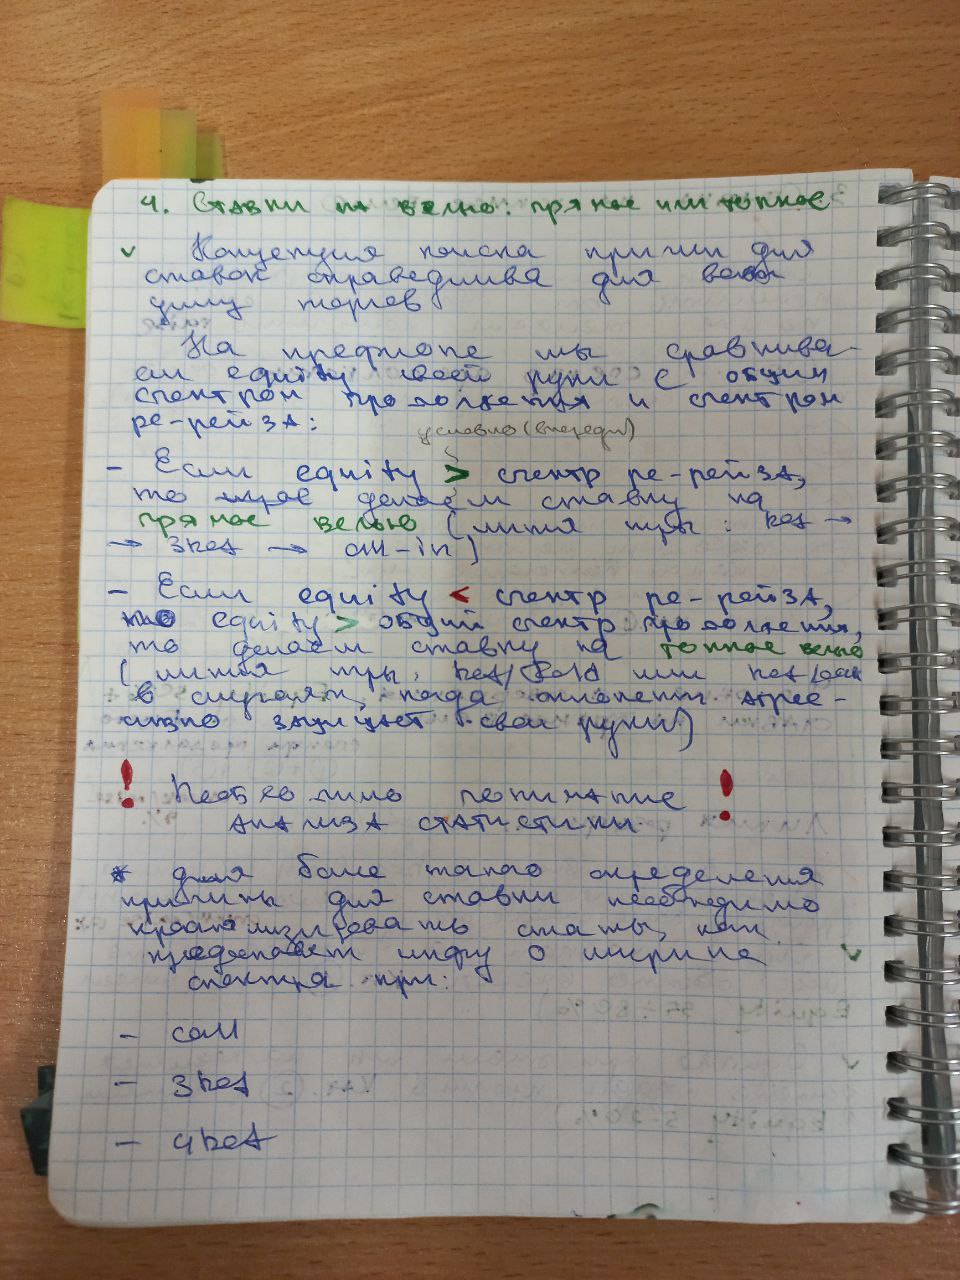 4. Ставки на велью: прямое или тонкое
Концепция поиска причин для
ставок справедлива для всей
улиц торгов
На префлопе мы сравнива-
ем equity своей руки с общим
спектром продолжения и спектром
ре-рейза:
условно (впереди)
- Если equity > спектр ре-рейза,
то делаем ставку на
прямое велью (линия игры: bet →
→ 3bet → all-in)
- Если equity < спектр ре-рейза,
но equity > общий спектр продолжения,
то делаем ставку на тонкое велью
(линия игры, bet/fold или bet/call
в ситуациях, когда оппонент агрес-
сивно защищает свои руки)
! Необходимо понимание !
анализа статистики
* для более точного определения
причины для ставки необходимо
проанализировать статы, как
предоставят инфу о ширине
спектра при:
- call
- 3bet
- 4bet